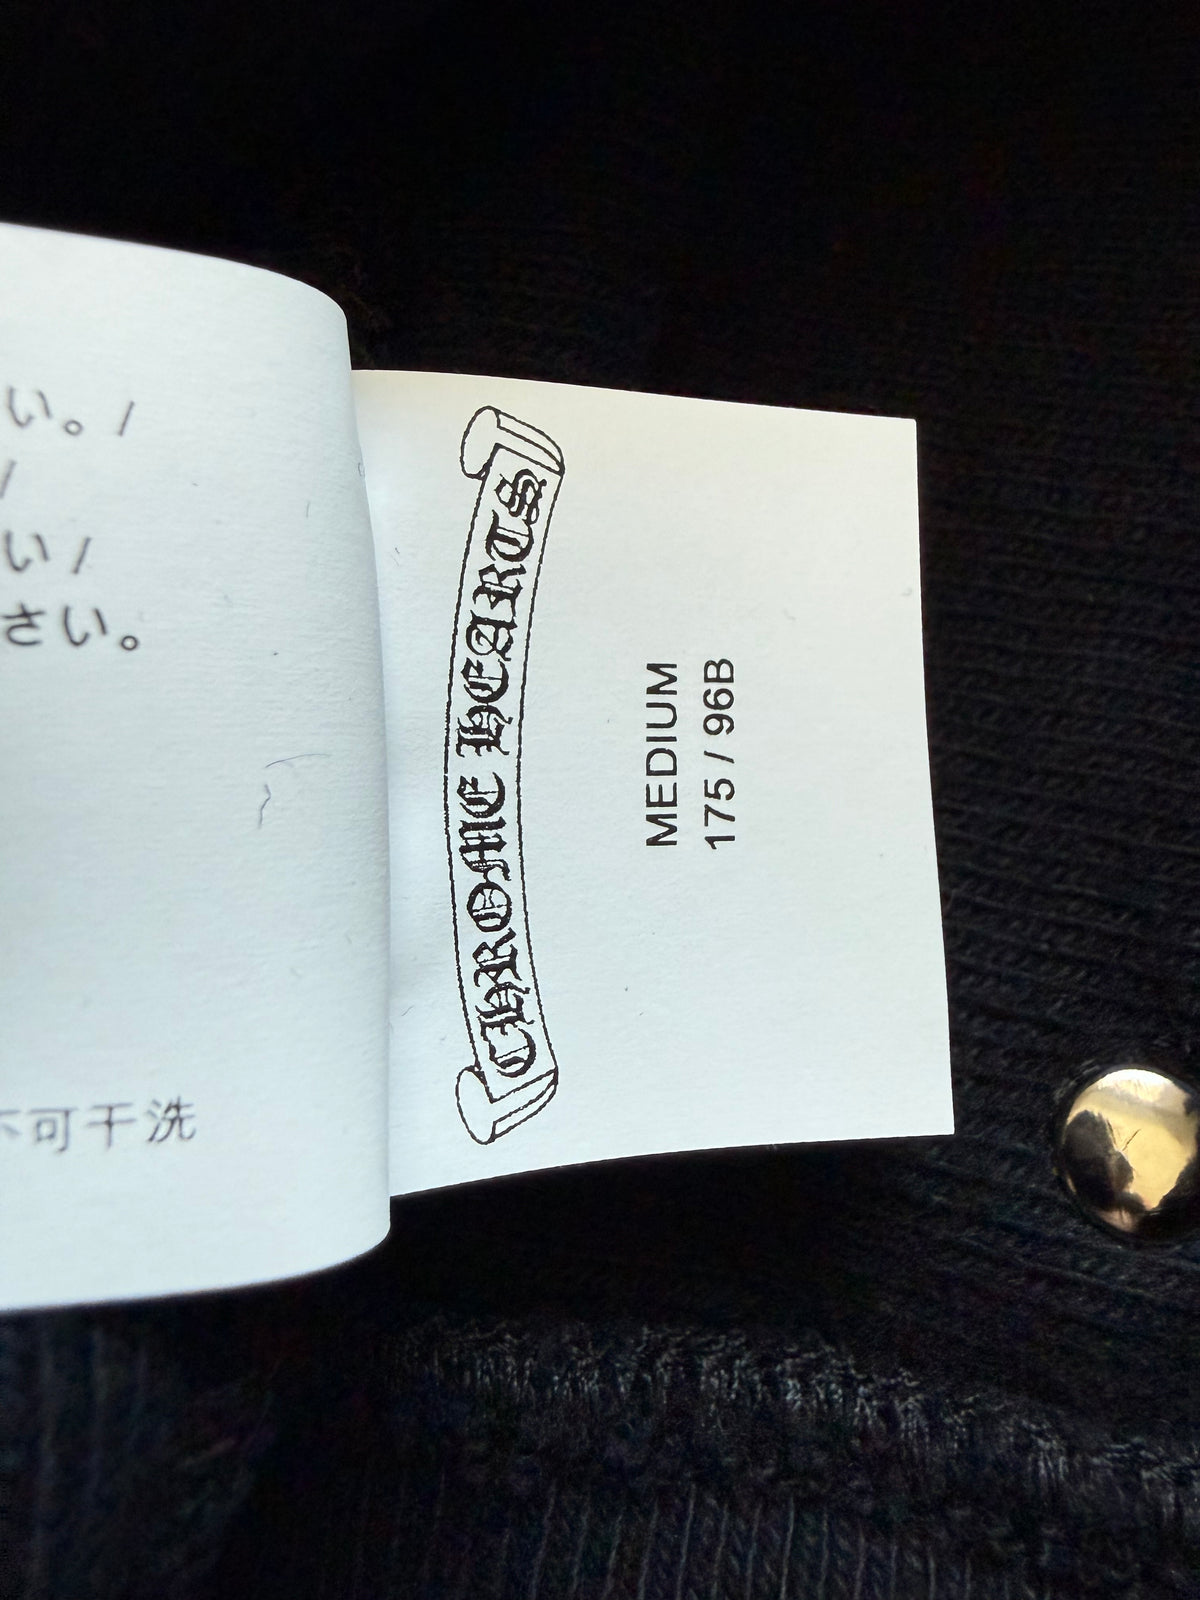 い。/
/
い/
さい。
不可干洗
CHROME HEARTS
MEDIUM
175 / 96B